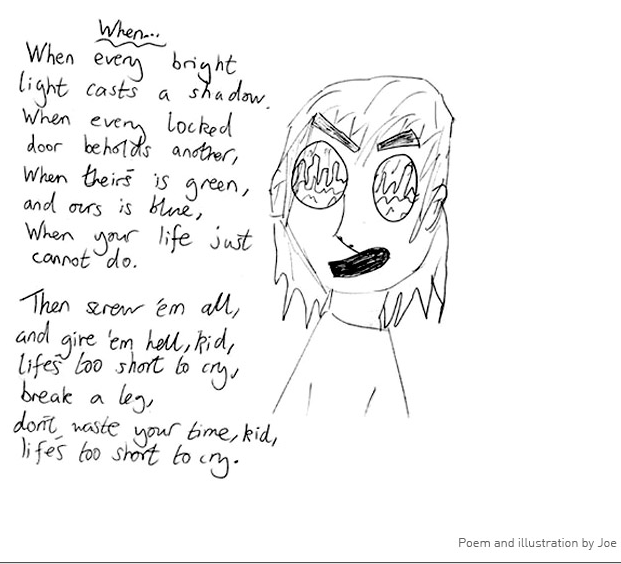 When...
When every bright
light casts a shadow.
When every locked
door beholds another,
When theirs is green,
and ours is blue,
When your life just
cannot do.
Then screw 'em all,
and give 'em hell, kid,
life's too short to cry,
break a leg,
don't waste your time, kid,
life's too short to cry.
Poem and illustration by Joe